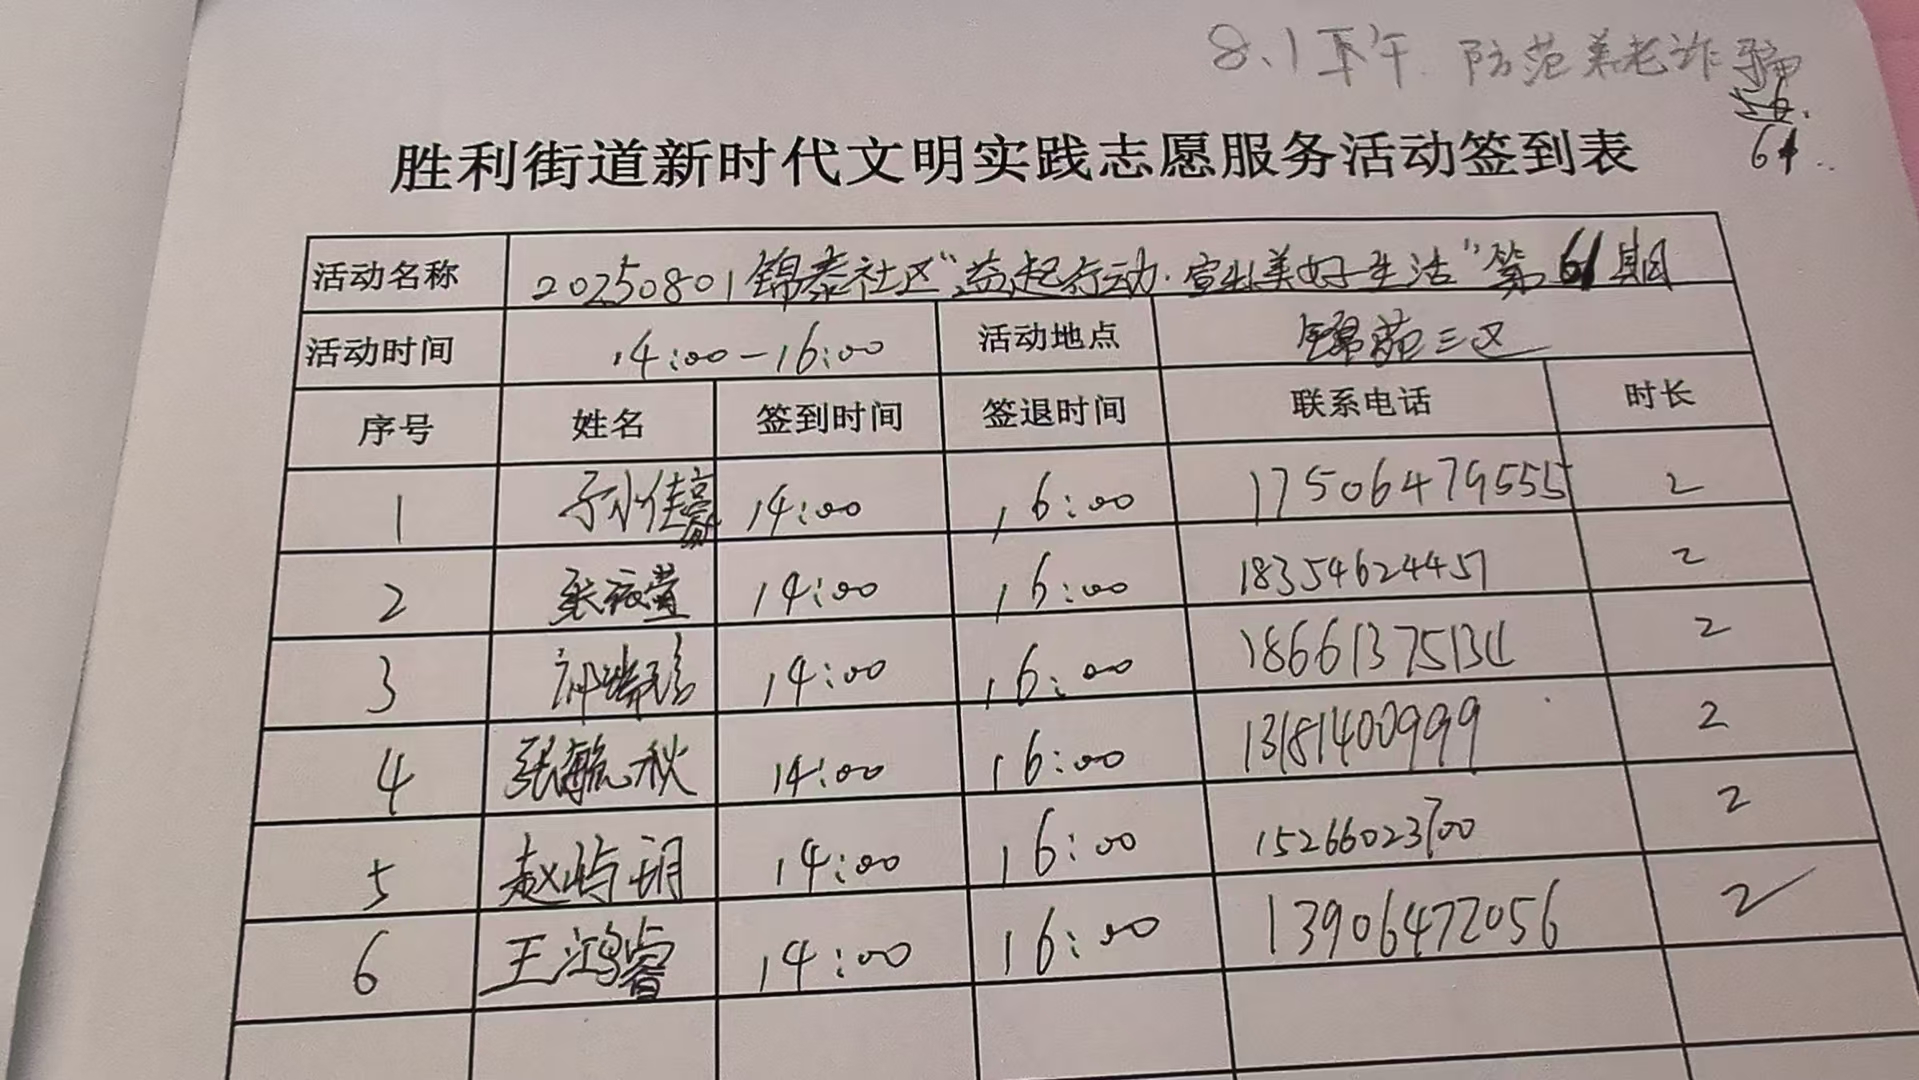 8.1下午 防范养老诈骗
61
胜利街道新时代文明实践志愿服务活动签到表
活动名称 20250801锦泰社区“益起行动·宣出美好生活”第61期
活动时间 14:00-16:00 活动地点 锦苑三区
序号 姓名 签到时间 签退时间 联系电话 时长
1 孙佳豪 14:00 16:00 17506479555 2
2 张 14:00 16:00 18354624457 2
3 14:00 16:00 18661375131 2
4 张毓秋 14:00 16:00 13181400999 2
5 赵屿玥 14:00 16:00 15266023700 2
6 王鸿睿 14:00 16:00 13906472056 2